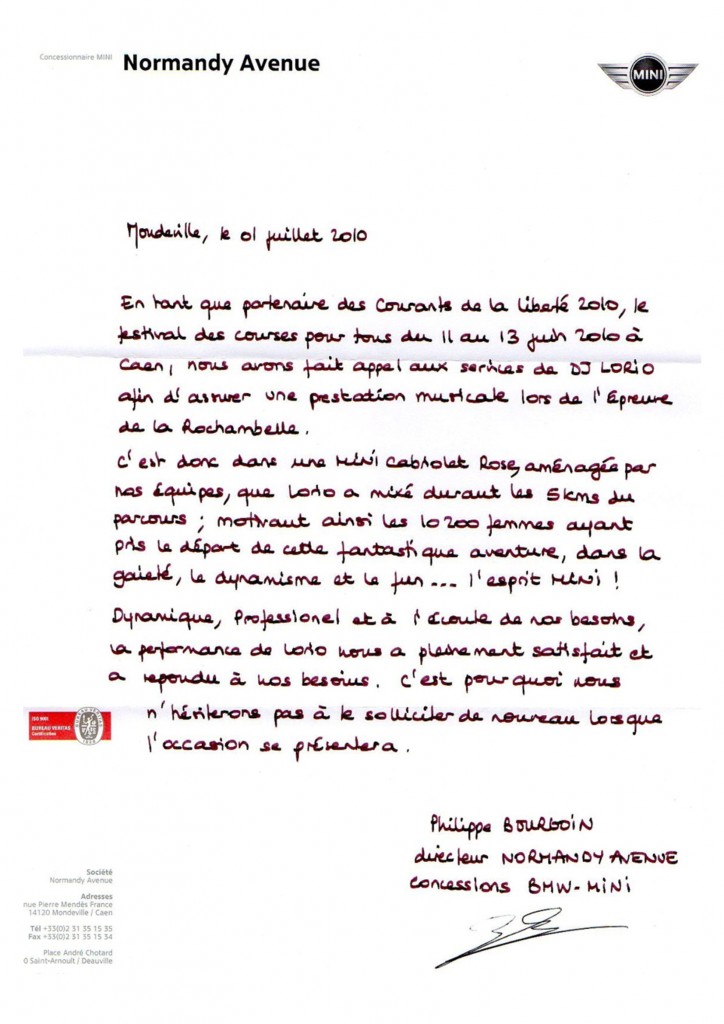 Concessionnaire MINI Normandy Avenue
MINI
Mondeville, le 01 juillet 2010
En tant que partenaire des Courants de la Liberté 2010, le
festival des courses pour tous du 11 au 13 juin 2010 à
Caen, nous avons fait appel aux services de DJ LORIO
afin d'assurer une prestation musicale lors de l'Epreuve
de la Rochambelle.
C'est donc dans une MINI Cabriolet Rose, aménagée par
nos équipes, que Lorio a mixé durant les 5kms du
parcours ; motivant ainsi les 10 200 femmes ayant
pris le départ de cette fantastique aventure, dans la
gaieté, le dynamisme et le fun... l'esprit MINI !
Dynamique, Professionel et à l'écoute de nos besoins,
la performance de Lorio nous a pleinement satisfait et
a repondu à nos besoins. C'est pourquoi nous
n'hésiterons pas à le solliciter de nouveau lorsque
l'occasion se présentera.
ISO 9001
BUREAU VERITAS
Certification
Philippe BOURGOIN
directeur NORMANDY AVENUE
Concessions BMW-MINI
Société
Normandy Avenue
Adresses
rue Pierre Mendés France
14120 Mondeville / Caen
Tél +33(0)2 31 35 15 35
Fax +33(0)2 31 35 15 34
Place André Chotard
0 Saint-Arnoult / Deauville